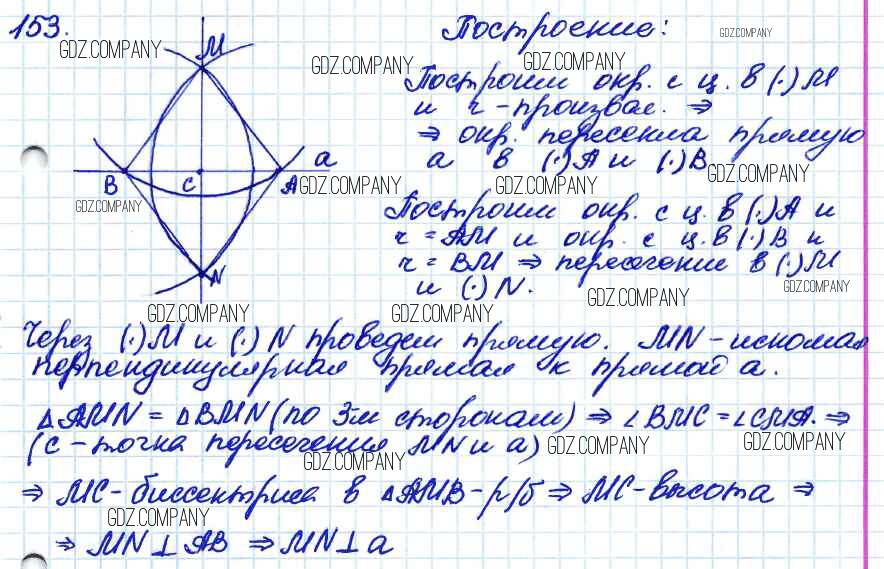 153.
GDZ.COMPANY
M
Построение:
GDZ.COMPANY
GDZ.COMPANY
GDZ.COMPANY
Построим окр. с ц. в (·) M
и r - произвол. ⇒
⇒ окр. пересекла прямую
a в (·) A и (·) B
GDZ.COMPANY
B C A a
GDZ.COMPANY
GDZ.COMPANY
GDZ.COMPANY
Построим окр. с ц. в (·) A и
r = AM и окр. с ц. в (·) B и
r = BM ⇒ пересечение в (·) M
и (·) N.
GDZ.COMPANY
GDZ.COMPANY
N
GDZ.COMPANY
GDZ.COMPANY
Через (·) M и (·) N проведем прямую. MN - искомая
перпендикулярная прямая к прямой a.
△AMN = △BMN (по 3-м сторонам) ⇒ ∠BMC = ∠CMA. ⇒
(C - точка пересечения MN и a)
GDZ.COMPANY
GDZ.COMPANY
GDZ.COMPANY
⇒ MC - биссектриса в △AMB - р/б ⇒ MC - высота ⇒
GDZ.COMPANY
⇒ MN ⊥ AB ⇒ MN ⊥ a